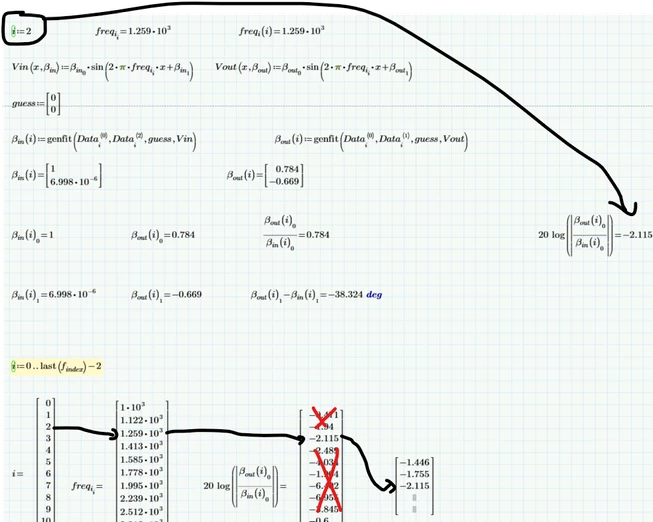 i:=2 freq_i=1.259•10^3 freq_i(i)=1.259•10^3
Vin(x,β_in):=β_in_0•sin(2•π•freq_i•x+β_in_1) Vout(x,β_out):=β_out_0•sin(2•π•freq_i•x+β_out_1)
guess:=[0 0]
β_in(i):=genfit(Data_i^⟨0⟩,Data_i^⟨2⟩,guess,Vin) β_out(i):=genfit(Data_i^⟨0⟩,Data_i^⟨1⟩,guess,Vout)
β_in(i)=[1 6.998•10^-6] β_out(i)=[0.784 -0.669]
β_in(i)_0=1 β_out(i)_0=0.784 β_out(i)_0/β_in(i)_0=0.784 20 log(|β_out(i)_0/β_in(i)_0|)=-2.115
β_in(i)_1=6.998•10^-6 β_out(i)_1=-0.669 β_out(i)_1-β_in(i)_1=-38.324 deg
i:=0..last(f_index)-2
0
1 1•10^3
2 1.122•10^3
3 1.259•10^3 -2.115
4 1.413•10^3
5 1.585•10^3 -1.446
6 1.778•10^3 -1.755
i= 7 freq_i= 1.995•10^3 20 log(|β_out(i)_0/β_in(i)_0|)= -2.115
8 2.239•10^3
9 2.512•10^3
10 -0.6